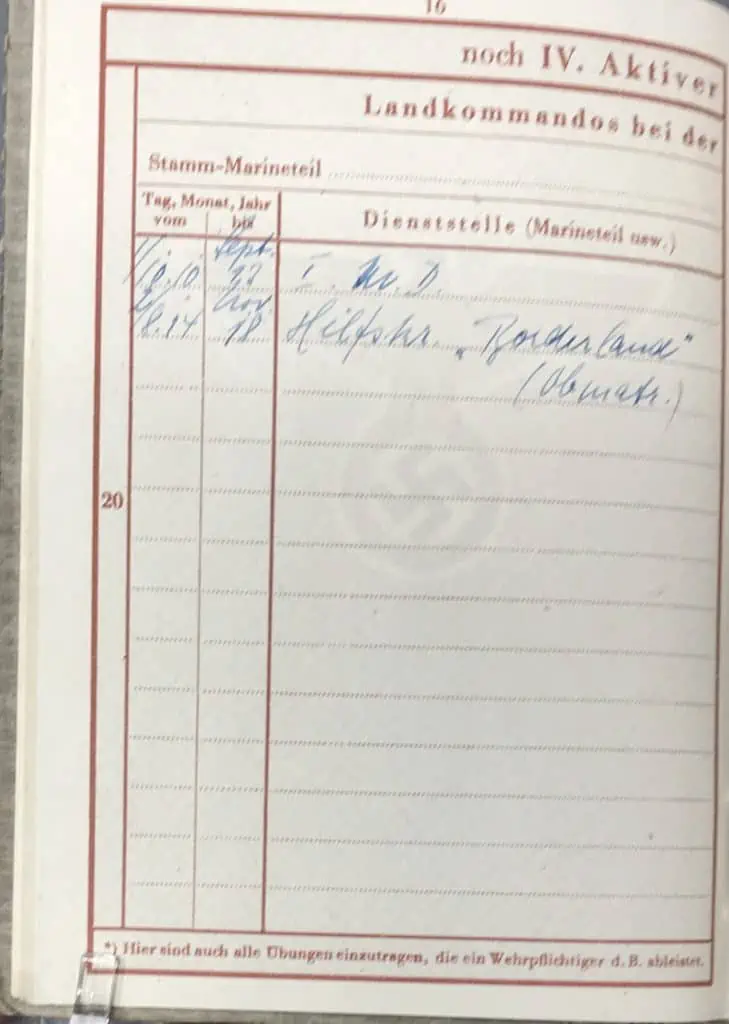 16
noch IV. Aktiver
Landkommandos bei der
Stamm-Marineteil
Tag, Monat, Jahr
vom bis
Dienststelle (Marineteil usw.)
Sept.
I. M. D.
Nov.
8.14 18 Hilfskr. „Borderland"
(Obmatr.)
20
*) Hier sind auch alle Übungen einzutragen, die ein Wehrpflichtiger d. B. ableistet.